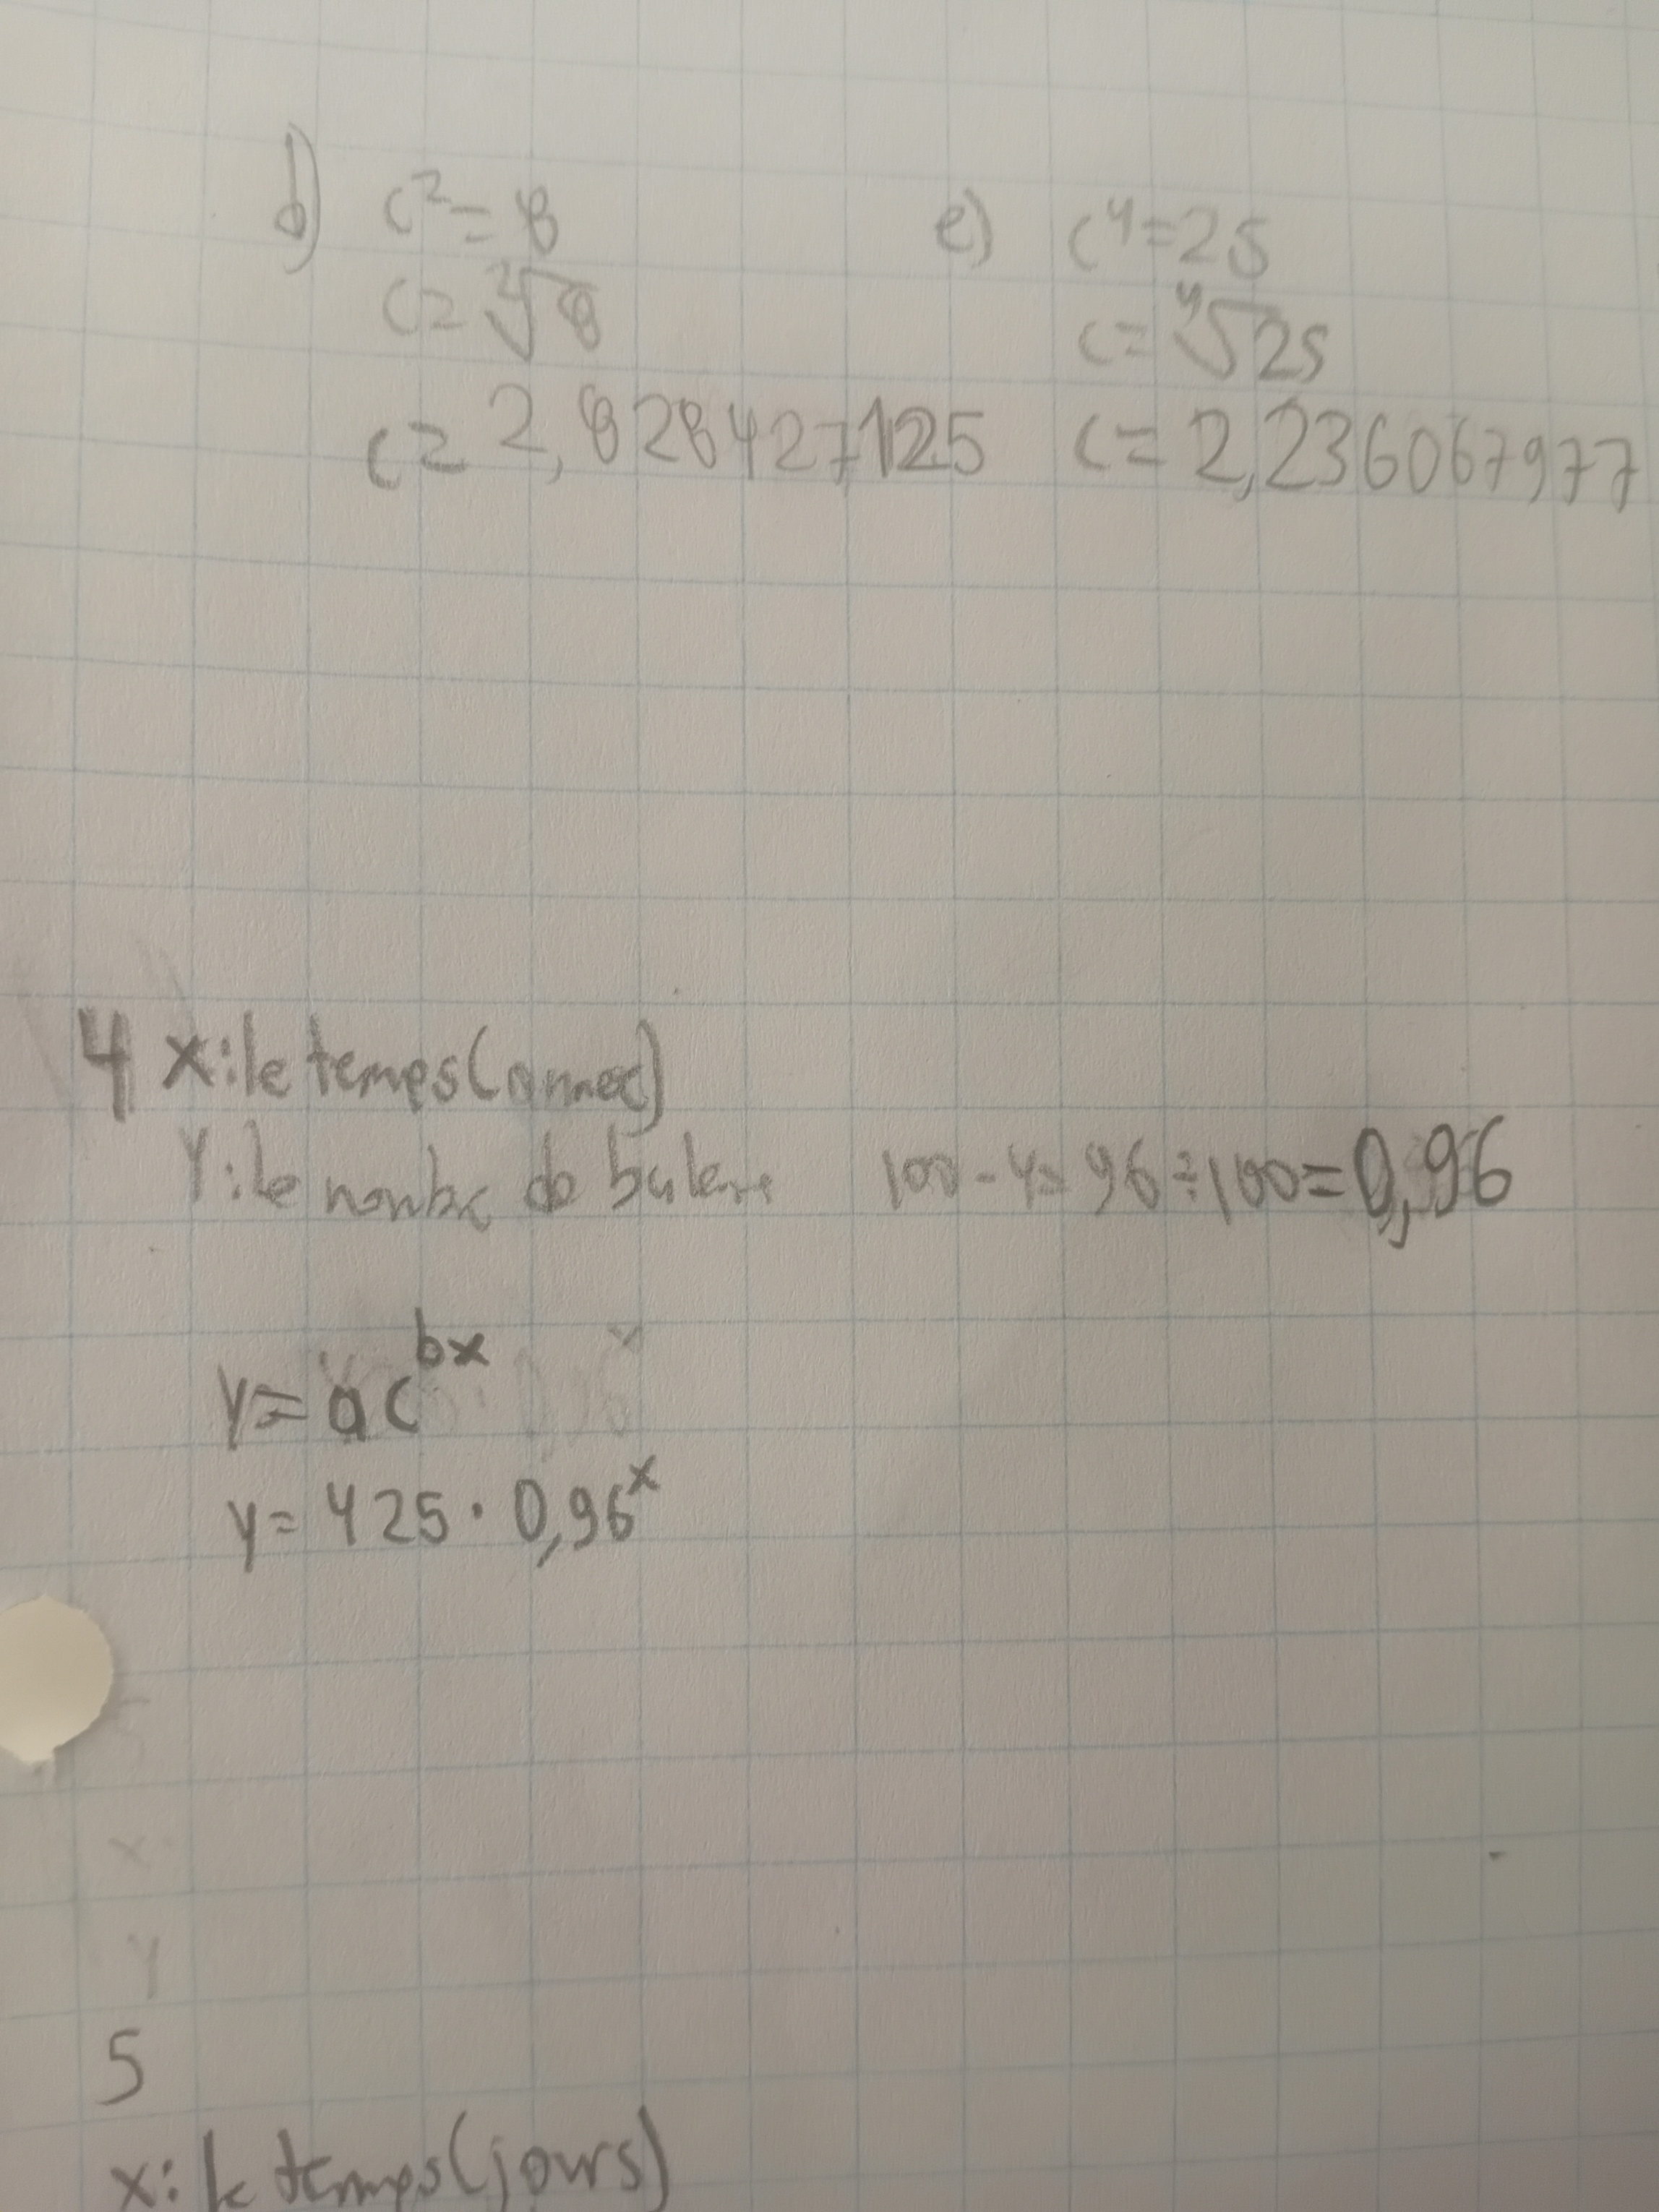 d) c²=8
c=²√8
c=2,828427125
e) c⁴=25
c=⁴√25
c=2,236067977
4 x: le temps (année)
y: le nombre de 100-4=96÷100=0,96
y=ac^bx
y=425·0,96^x
x
y
5
x: le temps (jours)